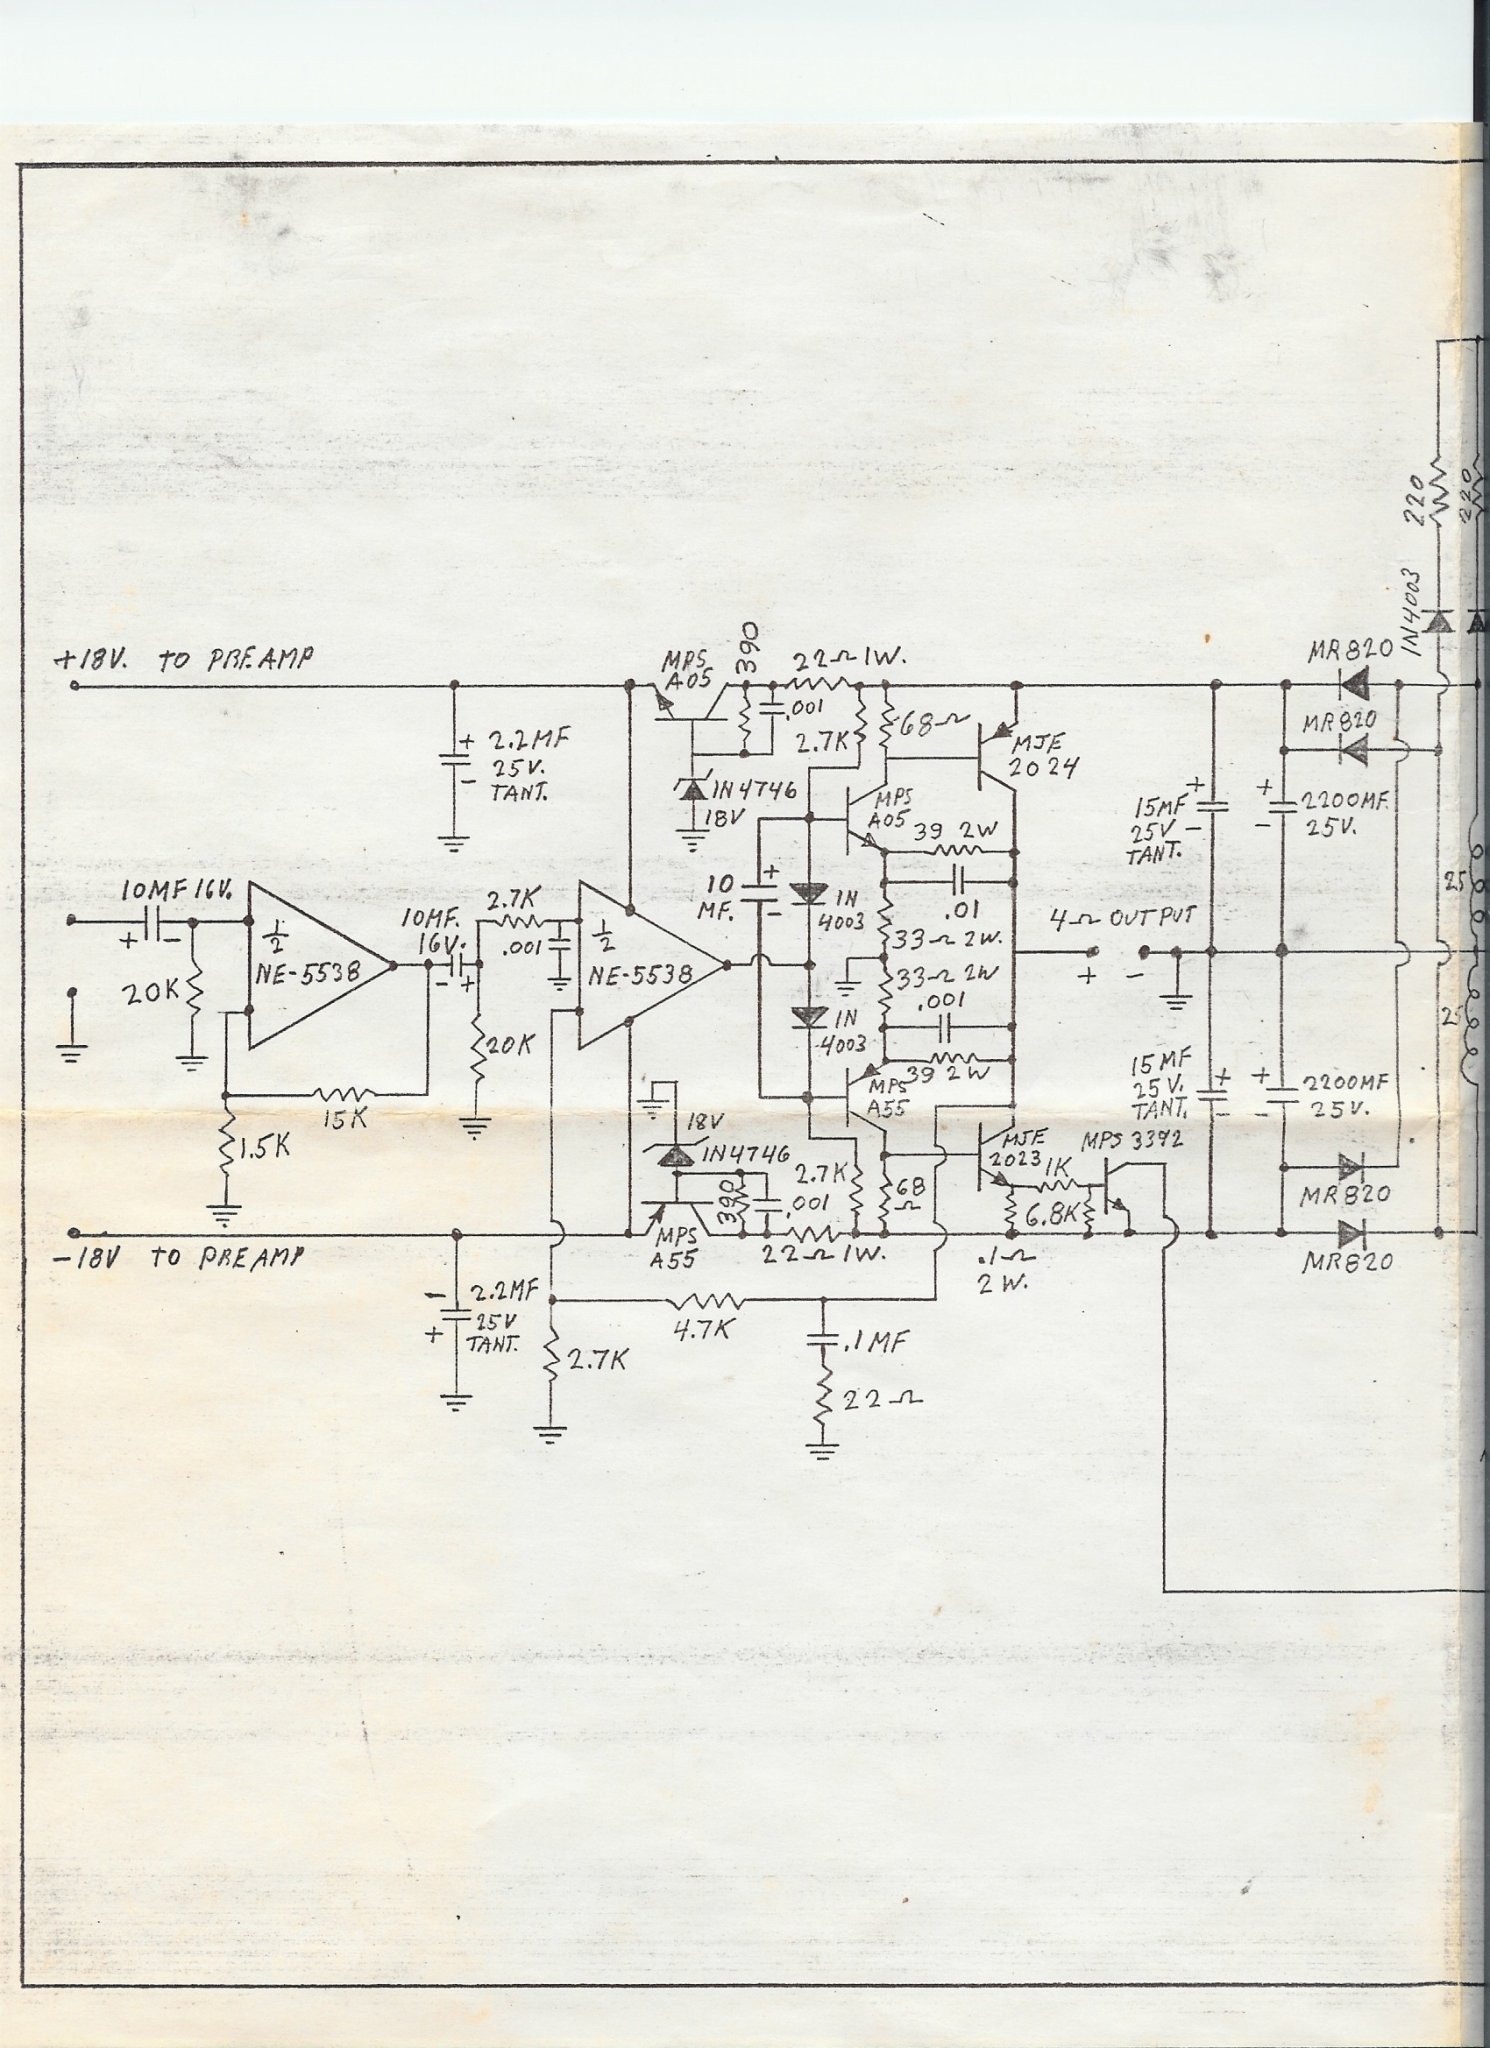 220
220
1N4003
+18V. TO PREAMP
MPS
A05
390
22Ω 1W.
MR820
.001
2.7K
68Ω
MJE
2024
MR820
+ 2.2MF
25V.
- TANT.
1N4746
18V
MPS
A05
39 2W
15MF +
25V -
TANT.
+ 2200MF.
- 25V.
10MF 16V.
+ -
1/2
NE-5538
10MF.
16V.
- +
2.7K
.001
1/2
NE-5538
10 +
MF. -
1N
4003
.01
33Ω 2W.
4Ω OUTPUT
+ -
25
20K
33Ω 2W
.001
1N
4003
20K
39 2W
25
15K
1.5K
18V
1N4746
MPS
A55
15MF
25V. +
TANT. -
+ 2200MF
- 25V.
MJE
2023
MPS 3392
1K
2.7K
68
Ω
6.8K
390
.001
MR820
-18V TO PREAMP
MPS
A55
22Ω 1W.
.1Ω
2W.
MR820
- 2.2MF
25V
+ TANT.
4.7K
.1MF
2.7K
22Ω